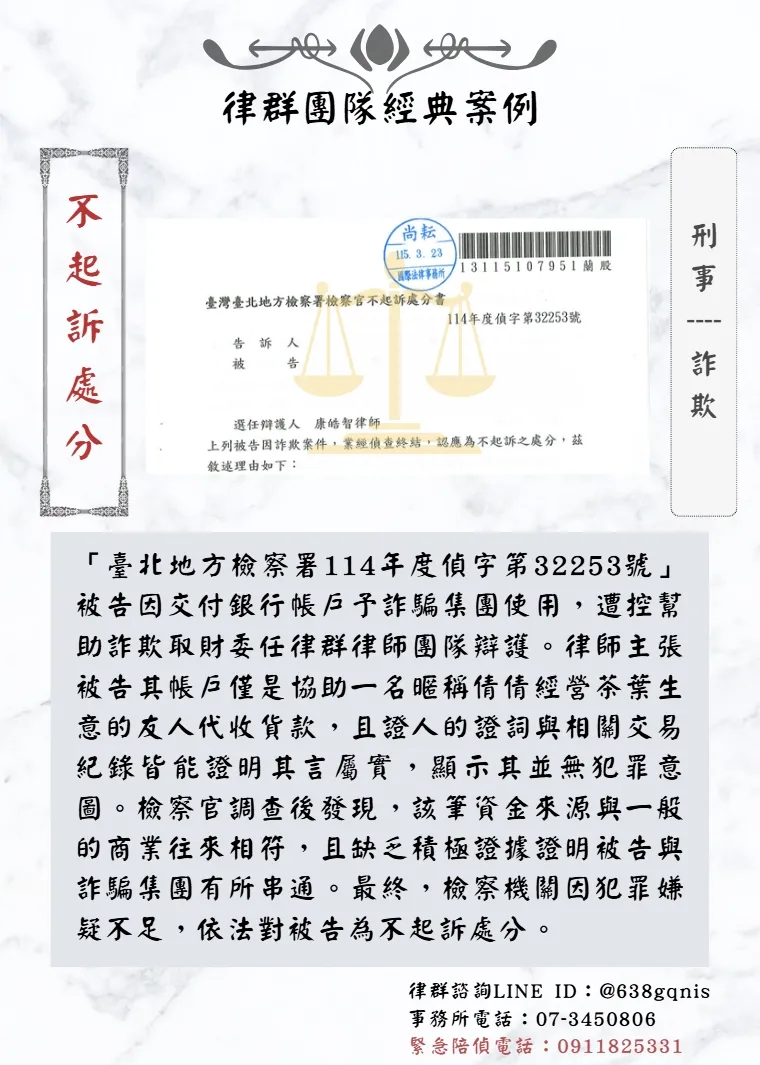 律群團隊經典案例
不起訴處分
刑事----詐欺
尚耘
115.3.23
國際法律事務所
13115107951 蘭股
臺灣臺北地方檢察署檢察官不起訴處分書
114年度偵字第32253號
告訴人
被告
選任辯護人 康皓智律師
上列被告因詐欺案件，業經偵查終結，認應為不起訴之處分，茲
敘述理由如下：
「臺北地方檢察署114年度偵字第32253號」
被告因交付銀行帳戶予詐騙集團使用，遭控幫
助詐欺取財委任律群律師團隊辯護。律師主張
被告其帳戶僅是協助一名暱稱倩倩經營茶葉生
意的友人代收貨款，且證人的證詞與相關交易
紀錄皆能證明其言屬實，顯示其並無犯罪意
圖。檢察官調查後發現，該筆資金來源與一般
的商業往來相符，且缺乏積極證據證明被告與
詐騙集團有所串通。最終，檢察機關因犯罪嫌
疑不足，依法對被告為不起訴處分。
律群諮詢LINE ID：@638gqnis
事務所電話：07-3450806
緊急陪偵電話：0911825331